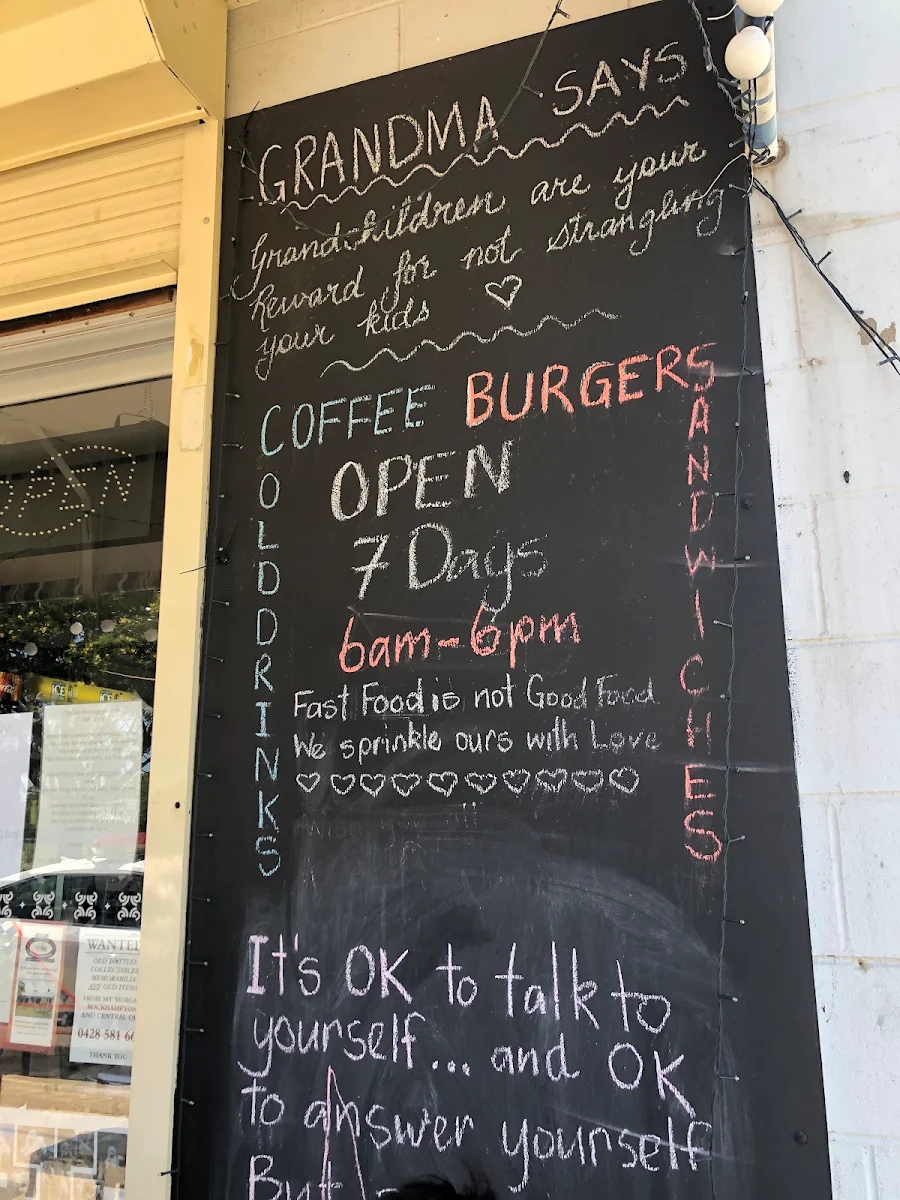 GRANDMA SAYS
Grandchildren are your
Reward for not strangling
your kids
COFFEE BURGERS
COLD DRINKS
SANDWICHES
OPEN
7 Days
6am-6pm
Fast Food is not Good Food
We sprinkle ours with Love
It's OK to talk to
yourself... and OK
to answer yourself
But -
OPEN
ICE
WANTED
OLD BOTTLES
COLLECTABLES
MEMORABILIA
ANY OLD ITEMS
FROM MT MORGAN
ROCKHAMPTON
AND CENTRAL Q
0428 581 66
THANK YOU